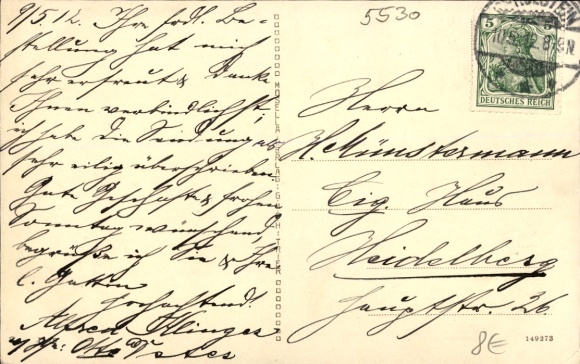 9/5.12. Ihre frdl. Be-
stellung hat mich
sehr erfreut & danke
Ihnen verbindlichst,
ich habe die Sendung als
sehr eilig überschrieben.
Gute Geschäfte & frohen
Sonntag wünschend,
begrüße ich Sie & Ihre
l. Gattin
Hochachtend!
Alfred Klinger
Otto
5530
5
DEUTSCHES REICH
Herrn
H. Münstermann
Eig. Haus
Heidelberg
Hauptstr. 26
8€
149273